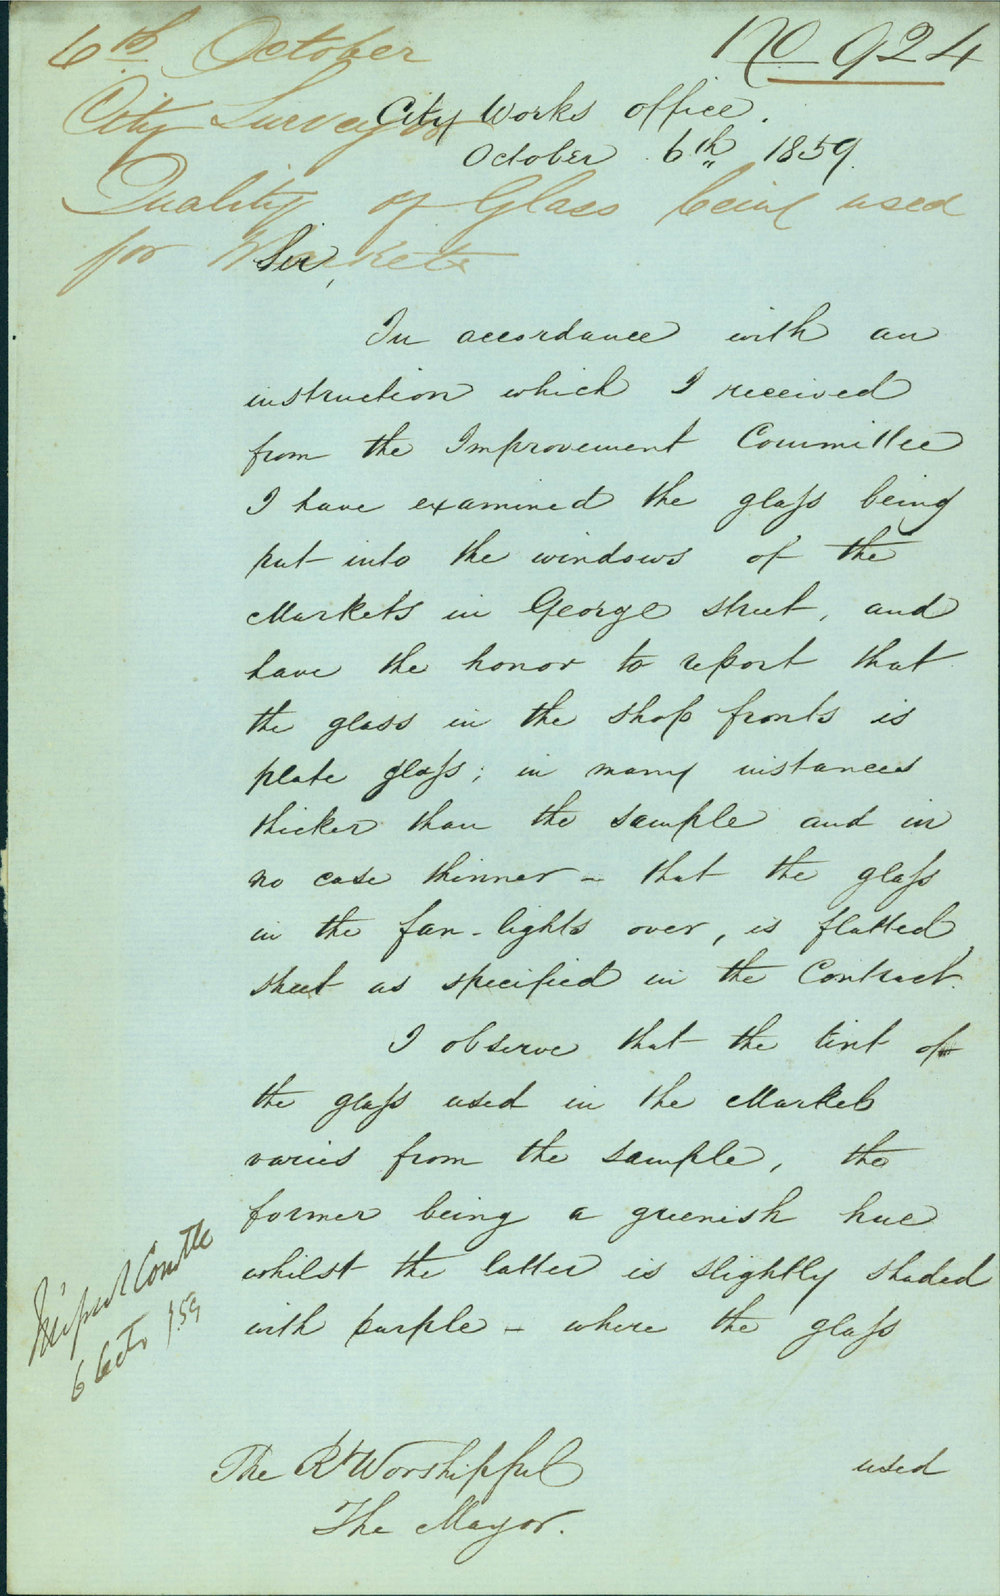 6th October
No 924
City Surveyor
City Works Office.
October 6th 1859.
Quality of Glass being used
for Markets
Sir,
In accordance with an
instruction which I received
from the Improvement Committee
I have examined the glass being
put into the windows of the
Markets in George Street, and
have the honor to report that
the glass in the shop fronts is
plate glass; in many instances
thicker than the sample and in
no case thinner - that the glass
in the fan-lights over, is flatted
sheet as specified in the Contract.
I observe that the tint of
the glass used in the Markets
varies from the sample, the
former being a greenish hue
whilst the latter is slightly shaded
with purple - where the glass
used
Committee
6 Octr /59
The Rt Worshipful
The Mayor.